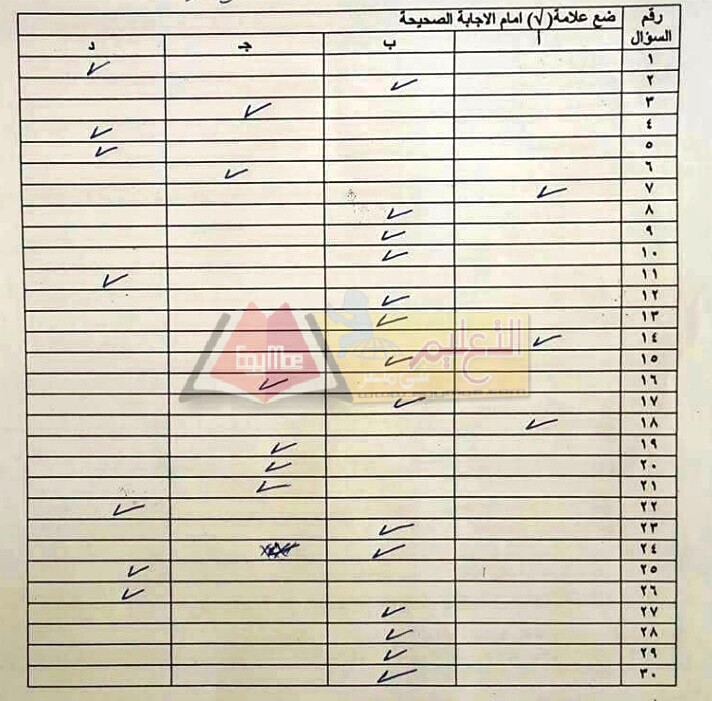 رقم السؤال
ضع علامة(√) امام الاجابة الصحيحة
أ ب جـ د
١ ✓
٢ ✓
٣ ✓
٤ ✓
٥ ✓
٦ ✓
٧ ✓
٨ ✓
٩ ✓
١٠ ✓
١١ ✓
١٢ ✓
١٣ ✓
١٤ ✓
١٥ ✓
١٦ ✓
١٧ ✓
١٨ ✓
١٩ ✓
٢٠ ✓
٢١ ✓
٢٢ ✓
٢٣ ✓
٢٤ ✓
٢٥ ✓
٢٦ ✓
٢٧ ✓
٢٨ ✓
٢٩ ✓
٣٠ ✓
التعليم
في مصر